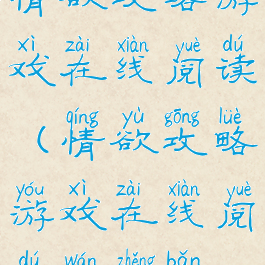 情欲攻略游
xì zài xiàn yuè dú
戏在线阅读
qíng yù gōng lüè
（情欲攻略
yóu xì zài xiàn yuè
游戏在线阅
dú wán zhěng bǎn